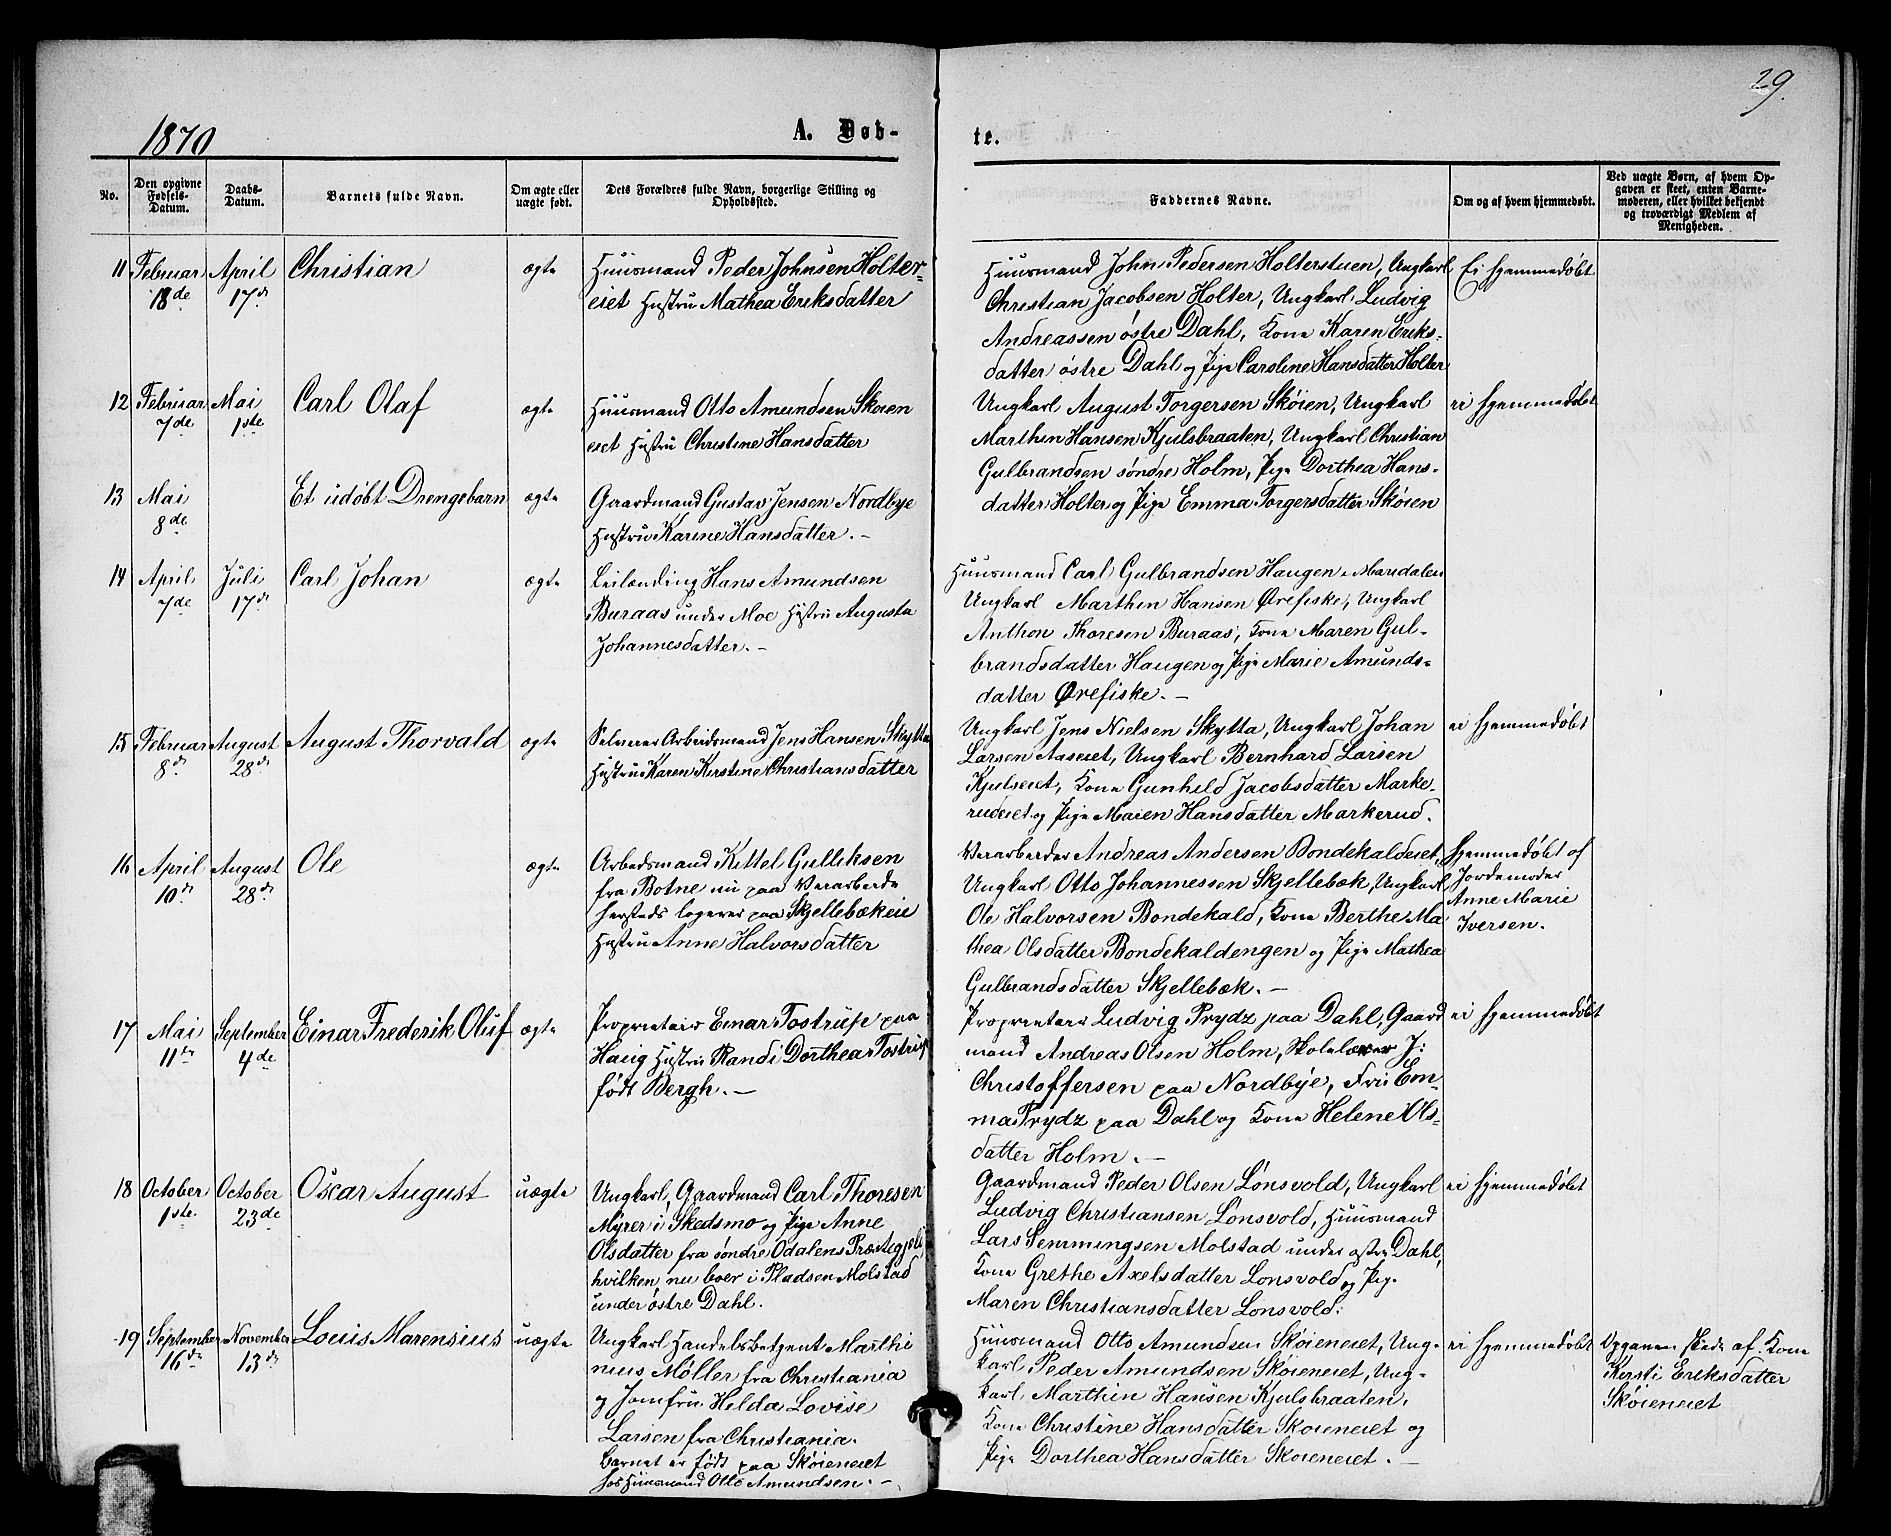 29.
1870
A. Døb-
te.
No.
Den opgivne
Fødsels-
Datum.
Daabs-
Datum.
Barnets fulde Navn.
Om ægte eller
uægte født.
Dets Forældres fulde Navn, borgerlige Stilling og
Opholdssted.
Faddernes Navne.
Om og af hvem hjemmedøbt.
Ved uægte Børn, af hvem Op-
gaven er skeet, enten Barne-
moderen, eller hvilket bekjendt
og troværdigt Medlem af
Menigheden.
11
Februar
18de
April
17de
Christian
ægte
Huusmand Peder Johnsen Holter-
eiet Hustru Mathea Eriksdatter
Huusmand John Pedersen Holterstuen, Ungkarl
Christian Jacobsen Holter, Ungkarl Ludvig
Andreassen østre Dahl, Kone Karen Eriks-
datter østre Dahl og Pige Caroline Hansdatter Holter
Ei hjemmedøbt
12
Februar
7de
Mai
1ste
Carl Olaf
ægte
Huusmand Otto Amundsen Skøien
eiet Hustru Christine Hansdatter
Ungkarl August Torgersen Skøien, Ungkarl
Marthin Hansen Kjulsbraaten, Ungkarl Christian
Gulbrandsen søndre Holm, Pige Dorthea Hans-
datter Holter og Pige Emma Torgersdatter Skøien
ei hjemmedøbt
13
Mai
8de
Et udøbt Drengebarn
ægte
Gaardmand Gustav Jensen Nordbye
Hustru Karine Hansdatter. -
14
April
7de
Juli
17de
Carl Johan
ægte
Leilænding Hans Amundsen
Buraas under Moe Hustru Augusta
Johannesdatter. -
Huusmand Carl Gulbrandsen Haugen i Maridalen
Ungkarl Marthin Hansen Ørefiske, Ungkarl
Anthon Thoresen Buraas, Kone Maren Gul-
brandsdatter Haugen og Pige Marie Amunds-
datter Ørefiske. -
15
Februar
8de
August
28de
August Thorvald
ægte
Selveier Arbeidsmand Jens Hansen Skytta
Hustru Karen Kirstine Christiansdatter
Ungkarl Jens Nielsen Skytta, Ungkarl Johan
Larsen Aaseiet, Ungkarl Bernhard Larsen
Kjulseiet, Kone Gunhild Jacobsdatter Marke-
rudeiet og Pige Maren Hansdatter Markerud.
ei hjemmedøbt
16
April
10de
August
28de
Ole
ægte
Arbeidsmand Kittel Gulliksen
fra Botne nu paa Veiarbeide
hersteds logerer paa Skjellebækeie
Hustru Anne Halvorsdatter
Veiarbeider Andreas Andersen Bondekaldeiet,
Ungkarl Otto Johannessen Skjellebæk, Ungkarl
Ole Halvorsen Bondekald, Kone Berthe Ma-
thea Olsdatter Bondekaldengen og Pige Mathea
Gulbrandsdatter Skjellebæk. -
hjemmedøbt af
Jordemoder
Anne Marie
Iversen.
17
Mai
11te
September
4de
Einar Frederik Oluf
ægte
Proprietair Einar Tostrup paa
Haug Hustru Randi Dorthea Tostrup
født Bergh. -
Proprietair Ludvig Prydz paa Dahl, Gaard
mand Andreas Olsen Holm, Skolelærer J:
Christoffersen paa Nordbye, Fru Em-
ma Prydz paa Dahl og Kone Helene Ols-
datter Holm. -
ei hjemmedøbt
18
October
1ste
October
23de
Oscar August
uægte
Ungkarl, Gaardmand Carl Thoresen
Myrer i Skedsmo og Pige Anne
Olsdatter fra søndre Odalens Præstegjeld
hvilken nu boer i Pladsen Molstad
under østre Dahl.
Gaardmand Peder Olsen Lønsvold, Ungkarl
Ludvig Christiansen Lonsvold, Huusmand
Lars Semmingsen Molstad under østre Dahl,
Kone Grethe Axelsdatter Lonsvold og Pige
Maren Christiansdatter Lonsvold.
ei hjemmedøbt
19
September
16de
November
13de
Louis Marensius
uægte
Ungkarl Handelsbetjent Marthi
nius Møller fra Christiania
og Jomfru Hilda Lovise
Larsen fra Christiania.
Barnet er født paa Skøieneiet
hos Huusmand Otto Amundsen. -
Huusmand Otto Amundsen Skøieneiet, Ung-
karl Peder Amundsen Skøieneiet, Ung-
karl Marthin Hansen Kjulsbraaten,
Kone Christine Hansdatter Skøieneiet og
Pige Dorthea Hansdatter Skøieneiet. -
ei hjemmedøbt
Opgaven skede af Kone
Kirsti Eriksdatter
Skøieneiet